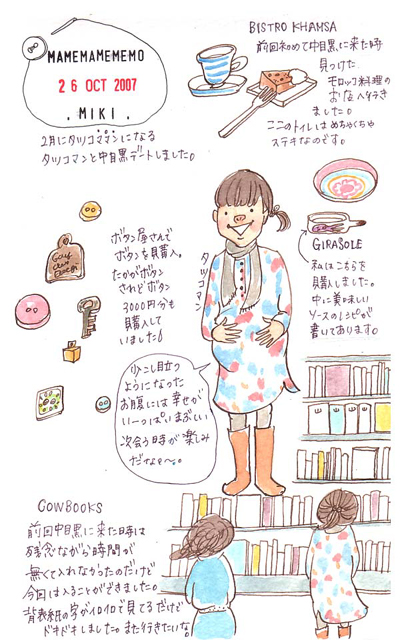 MAMEMAMEMEMO
26 OCT 2007
. MIKI .
2月にタツコママンになる
タツコマンと中目黒デートしました。
BISTRO KHAMSA
前回初めて中目黒に来た時
見つけた
モロッコ料理の
お店へ行き
ました。
ここのトイレはめちゃくちゃ
ステキなのです。
ボタン屋さんで
ボタンを購入。
たかがボタン
されどボタン
3000円分も
購入して
いました!
タツコマン
GIRASOLE
私はこちらを
購入しました。
中に美味しい
ソースのレシピが
書いてあります。
少こし目立つ
ようになった
お腹には幸せが
いーっぱいまぶしい
次会う時が楽しみ
だなぁ〜。
COWBOOKS
前回中目黒に来た時は
残念ながら時間が
無くて入れなかったのだけど
今回は入ることができました。
背表紙の字がイロイロで見てるだけど
ドキドキしました。また行きたいな。